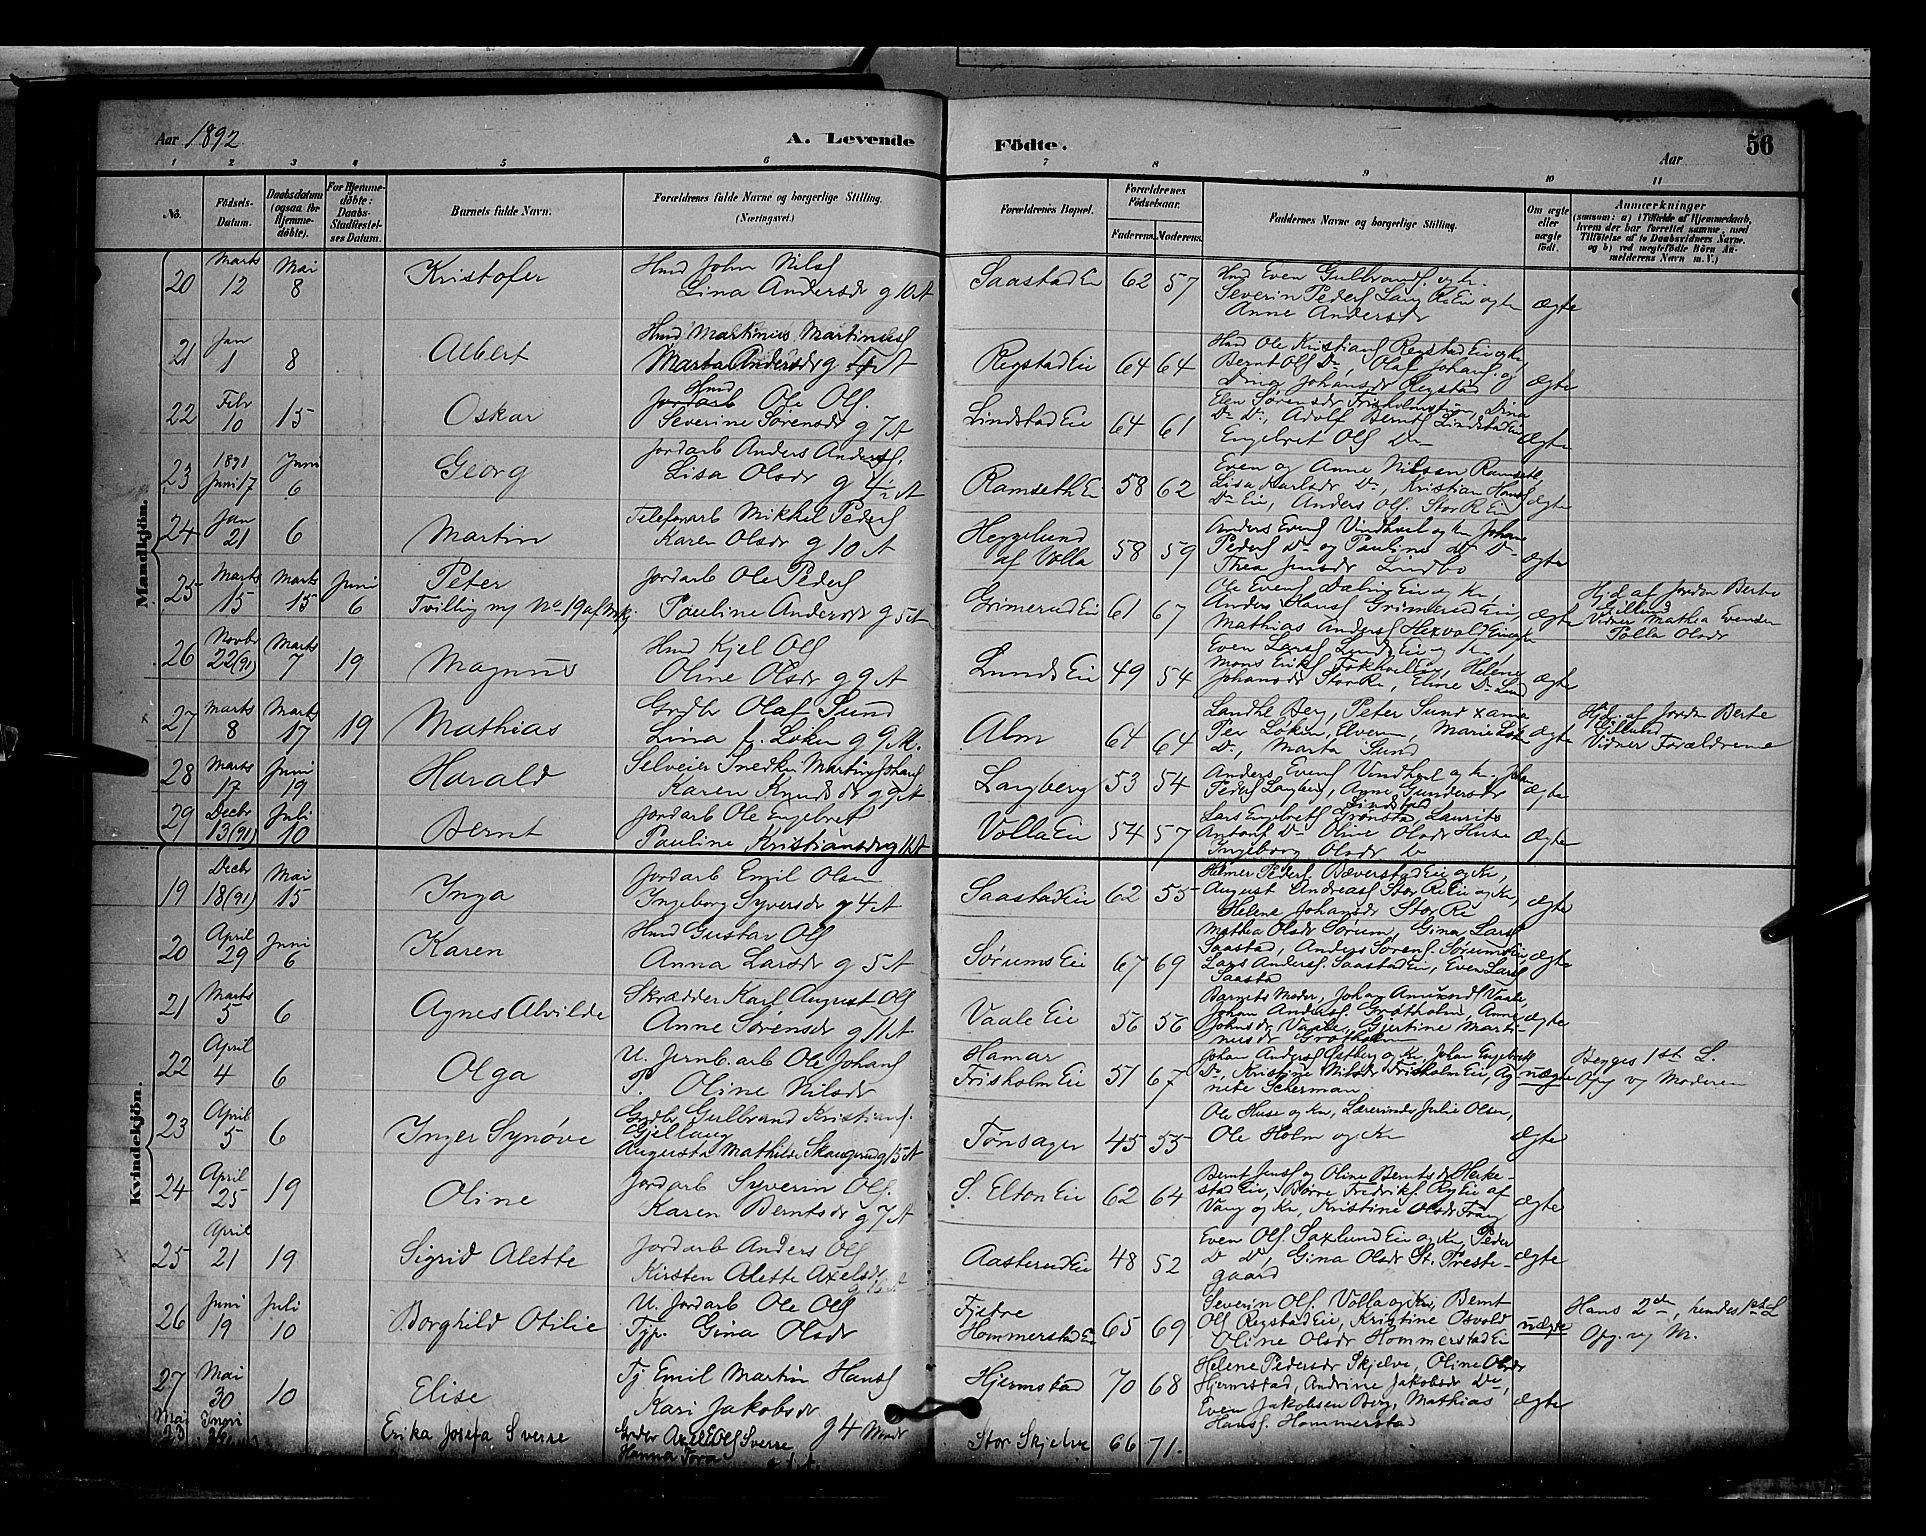 Aar 1892
A. Levende
Födte.
Aar
56
1 2 3 4 5 6 7 8 9 10 11
No.
Födsels-Datum.
Daabsdatum (ogsaa for Hjemme-döbte).
For Hjemme-döbte: Daabs-Stadfæstel-ses Datum.
Barnets fulde Navn.
Forældrenes fulde Navne og borgerlige Stilling.
(Næringsvei.)
Forældrenes Bopæl.
Forældrenes Födselsaar.
Faderens. Moderens.
Faddernes Navne og borgerlige Stilling.
Om ægte eller uægte født.
Anmærkninger
(saasom: a) i Tilfælde af Hjemmedaab, hvem der har forrettet samme, med Tilföielse af to Daabsvidners Navne, og b) ved uægtefödte Börn Anmelderens Navn m. V.)
Mandkjön.
20 Marts 12 Mai 8 Kristofer
Hmd John Nils
Lina Andersdr g 10 A
Saastad Ei 62 57
Hmd Even Gulbrands og k.
Severin Peders Lang Re Ei og k
Anne Andersdr
ægte
21 Jan 1 8 Albert
Hmd Martinius Martinius
Marta Andersdr g A
Regstad Ei 64 64
Hmd Ole Kristians Regstad Ei og k,
Bernt Ols Do, Olaf Johans. og
Dina Johansdr Regstad
ægte
22 Febr 10 15 Oskar
Hmd
Jordarb Ole Ols.
Severine Sørensdr g 7 A
Lindstad Ei 64 61
Elen Sørensdr Frisholm, Dina
Do Do, Adolf Bernts Lindstad Ei
Engebret Ols Do
ægte
23 1891 Juni 17 Juni 6 Georg
Jordarb Anders Anders.
Lisa Olsdr g 4½ A
Ramseth Ei 58 62
Even og Anne Nilsen Ramseth,
Lisa Karlsdr Do, Kristian Hans
Do Ei, Anders Ols. Stor Re Ei
ægte
24 Jan 21 6 Martin
Telefonarb Mikkel Peders
Karen Olsdr g 10 A
Heggelund
af Volla
58 59
Anders Evens Vindhvel og k Johan
Peders Do og Pauline Do
Thea Jensdr Lundbo
ægte
25 Marts 15 Marts 15 Juni 6 Peter
Tvilling m No 19 af Mkj.
Jordarb Ole Peders
Pauline Andersdr g 5 A
Grimerud Ei 61 67
Ole Evens Dalin Ei og k,
Anders Hans Grimerud Ei,
Mathias Anders Hexvold Ei og k
ægte
Hjd af Jordm Berte
Gillund
Vidner Mathea Evensdr
Polla Olsdr
26 Novbr 22(91) Marts 7 19 Magnus
Hmd Kjel Ols
Oline Olsdr g 9 A
Lunds Ei 49 54
Even Lars Lunds Ei og k,
Mons Eriks Fokhol Ei, Helene
Johansdr Stor Re, Eline Do Lund
ægte
27 Marts 8 Marts 17 19 Mathias
Grdbr Olaf Sund
Lina f. Løken g 9 M.
Alm 64 64
Landhl Berg, Peter Sund
Per Løken, Elverum, Marie Løken
Do, Marta Sund
ægte
Hjd. af Jordm Berte
Gillund
Vidner Forældrene
28 Marts 17 Juni 19 Harald
Selveier Snedker Martin Johans
Karen Knudsdr g 9 A
Langberg 53 54
Anders Evens Vindhvel og k. Johan
Peders Langberg, Anne Gundersdr
Lindstad
ægte
29 Decbr 13(91) Juli 10 Bernt
Jordarb Ole Engebret
Pauline Kristiansdr g 11 A
Volla Ei 54 57
Lars Engebrets Grønsta, Laurits
Antons Do Oline Olsdr Huse
Ingeborg Olsdr
ægte
Kvindekjön.
19 Decbr 18(91) Mai 15 Inga
Jordarb Emil Olsen
Ingeborg Syversdr g 4 A
Saastad Ei 62 55
Helmer Peders Bæverstad Ei og k,
August Andreas Stor Re Ei og k,
Helene Johansdr Stor Re
ægte
20 April 29 Juni 6 Karen
Hmd Gustav Ols
Anna Larsdr g 5 A
Sørums Ei 67 69
Mathea Olsdr Sørum, Gina Lars
Saastad, Anders Sørens. Sørums Ei
Lars Anders. Saastad Ei, Even Lars
Saasta
ægte
21 Marts 5 6 Agnes Alvilde
Skrædder Karl August Ols
Anne Sørensdr g 11 A
Vaale Ei 56 56
Barnets Moder, Johan Amunds Vaale,
Johan Anders Grøtholm, Anne
Johnsdr Vaale, Gjertine Marti-
nusdr Grøtholm
ægte
22 April 4 6 Olga
U. Jernb. arb Ole Johans
P. Oline Nilsdr
Hamar
Frisholm Ei
51 67
Johan Anders Østberg og k, Johan Engebrets
Do, Kristine Nilsdr Frisholm Ei Ag
nete Scherman.
uægte
Begges 1ste L.
Opg v Moderen
23 April 5 6 Inger Synøve
Grdbr Gulbrand Kristians.
Gjellaug
Augusta Mathilde Skaugrud g 15 A
Tønsager 45 55
Ole Huse og k, Lærerinde Julie Olsen,
Ole Holm og k
ægte
24 April 25 19 Oline
Jordarb Syverin Ols.
Karen Berntsdr g 7 A
S. Elton Ei 62 64
Bernt Jens og Oline Berntsdr Herke-
stad Ei, Børre Fredriks. Ry Ei af
Vang og k, Kristine Olsdr Frang
ægte
25 April 21 19 Sigrid Alette
Jordarb Anders Ols
Kirsten Alette Axelsdr
Aasterud Ei 48 52
Even Ols Saxlund Ei og k, Peder
Do Do, Gina Olsdr St. Preste-
gaard
ægte
26 Juni 19 Juli 10 Borghild Otilie
U. Jordarb Ole Ols
Tjp. Gina Olsdr
Fjetre
Hommerstad Ei
65 69
Severin Ols. Volla og k, Bernt
Ols Regstad Ei, Kristine Osvold
Oline Olsdr Hommerstad Ei
uægte
Hans 2det, hendes 1ste L
Opg. v M.
27 Mai 30 10 Elise
Tj. Emil Martin Hans
Kari Jakobsdr
g 4 Mndr
Hjermstad 70 68
Helene Pedersdr Skjelve, Oline Olsdr
Hjermstad, Andrine Jakobsdr Do,
Even Jakobsen Berg, Mathias
Hans. Hommerstad
ægte
Mai 23 Juni 26 Erika Josefa Sverre
Grdbr Axel Ols Sverre
Hanna Tora
Stor Skjelve 66 71.